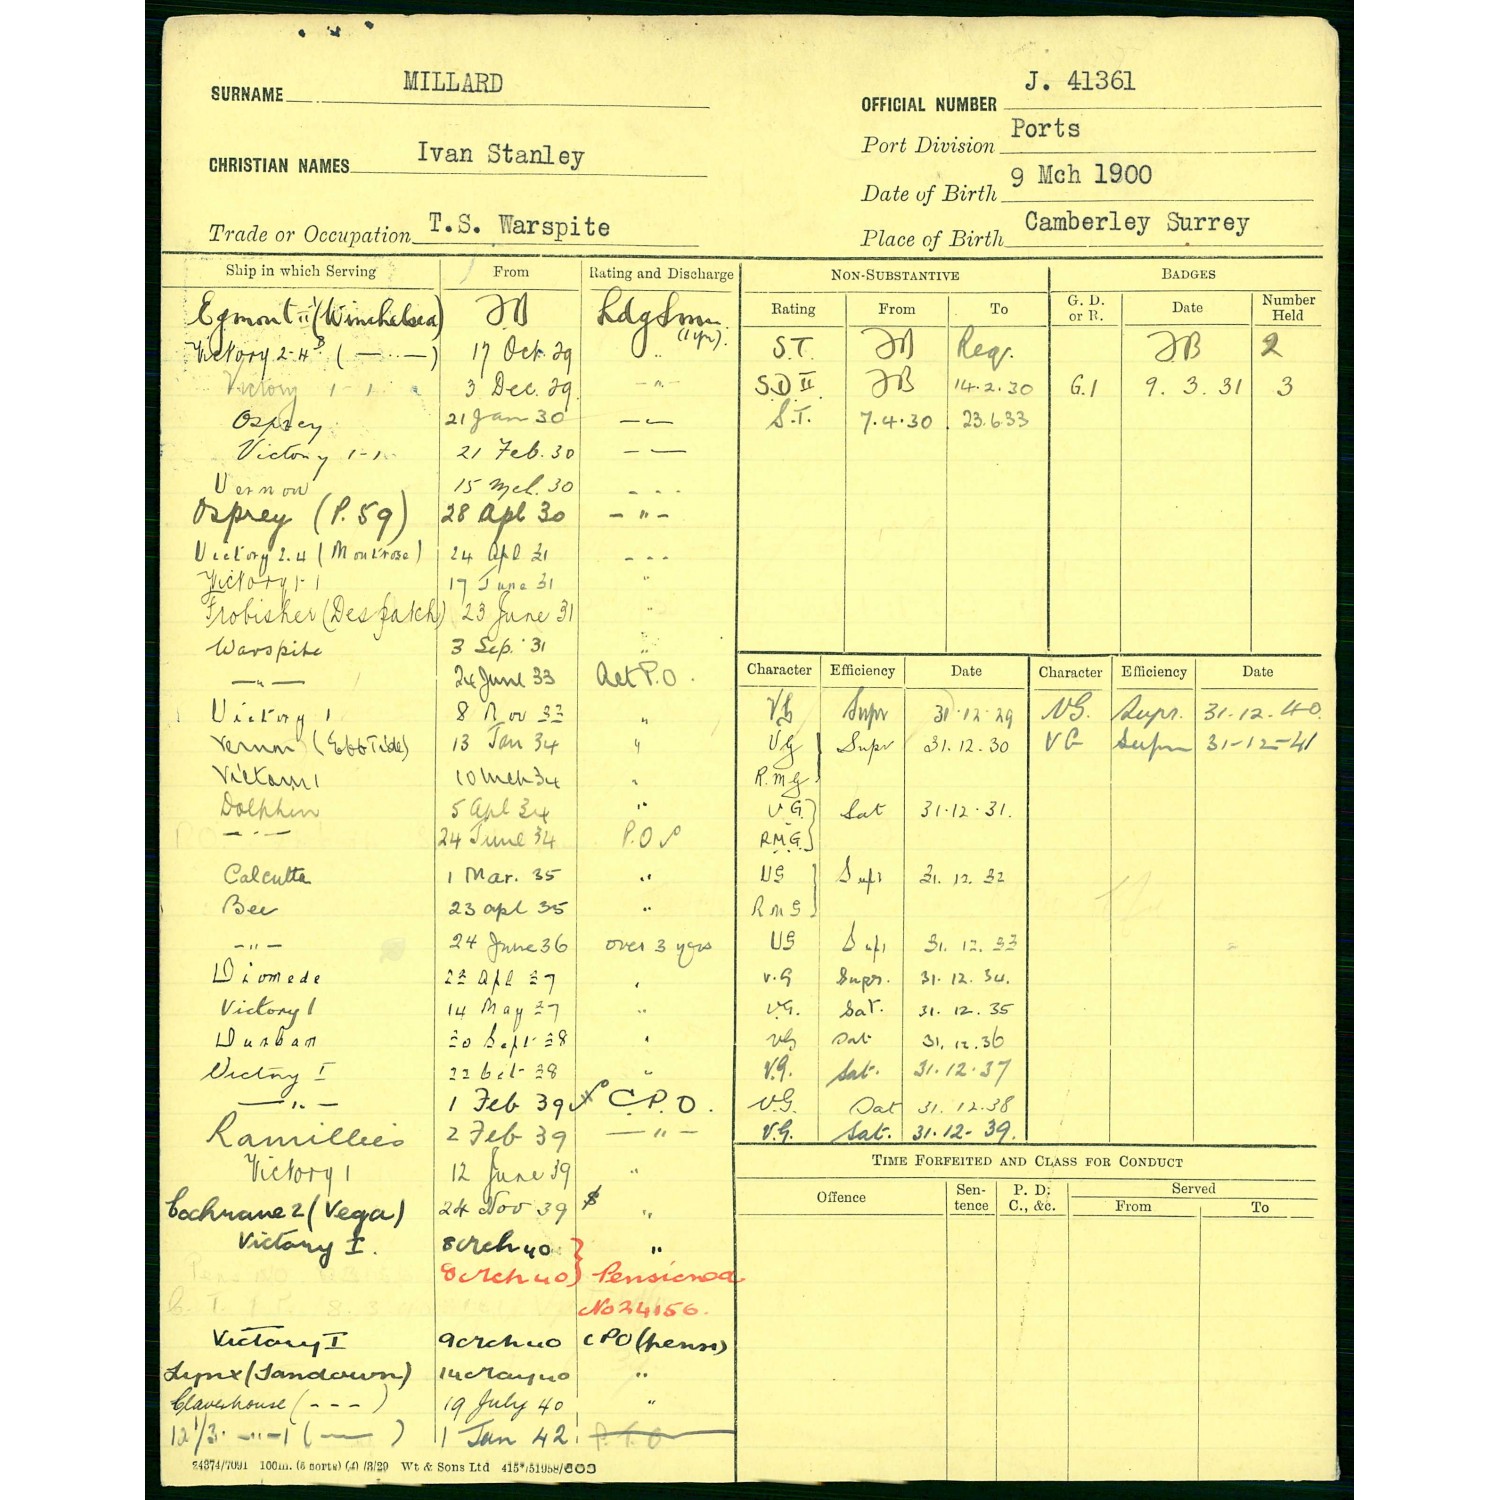 SURNAME MILLARD
OFFICIAL NUMBER J. 41361
Port Division Ports
CHRISTIAN NAMES Ivan Stanley
Date of Birth 9 Mch 1900
Trade or Occupation T.S. Warspite
Place of Birth Camberley Surrey
Ship in which Serving From Rating and Discharge
Egmont II (Winchelsea) JB Ldg Smn. (1 yr).
Victory 2-4 B ( — " — ) 17 Oct. 29 "
Victory 1-1 3 Dec. 29 - " -
Osprey 21 Jan 30 — " —
Victory 1-1 21 Feb. 30 — " —
Vernon 15 Mch. 30 - - -
Osprey (P. 59) 28 Apl 30 - " -
Victory 2.4 (Montrose) 24 Apl 31 - - -
Victory 1-1 17 June 31 "
Frobisher (Despatch) 23 June 31 "
Warspite 3 Sep. 31 "
— " — 24 June 33 Act P.O.
Victory 1 8 Nov 33 "
Vernon (Ebb Tide) 13 Jan 34 "
Victory 1 10 Mch 34 "
Dolphin 5 Apl 34 "
— " — 24 June 34 P.O
Calcutta 1 Mar. 35 "
Bee 23 Apl 35 "
- " - 24 June 36 over 3 yrs
Diomede 23 Apl 37 "
Victory 1 14 May 37 "
Durban 20 Sept 38 "
Victory I 22 Oct 38 "
— " — 1 Feb 39 C.P.O.
Ramillies 2 Feb 39 — " —
Victory 1 12 June 39 "
Cochrane 2 (Vega) 24 Nov 39 "
Victory I. 8 Mch 40 "
8 Mch 40 Pensioned
No 24156.
Victory I 9 Mch 40 CPO (pens)
Lynx (Sandown) 14 May 40 "
Claverhouse ( - - - ) 19 July 40 "
12 1/3. - " - 1 ( — ) 1 Jan 42 P.T.O
24374/7091 100m. (5 sorts) (4) /8/29 Wt & Sons Ltd 415*/51958/603
NON-SUBSTANTIVE
Rating From To
S.T. JB Req.
SD II JB 14.2.30
S.T. 7.4.30 23.6.33
BADGES
G. D. or R. Date Number Held
JB 2
G.1 9. 3. 31 3
Character Efficiency Date
VG Supr 31.12.29
VG Supr 31.12.30
R.M.G
V.G. Sat 31.12.31.
R.M.G.
VG Supr 31.12.32
RMG
VG Supr 31.12.33
V.G Supr. 31.12.34.
V.G. Sat. 31.12.35
VG Sat 31.12.36
V.G. Sat. 31.12.37
V.G. Sat 31.12.38
V.G. Sat. 31.12.39.
Character Efficiency Date
VG. Supr. 31.12.40.
VG Supr 31-12-41
TIME FORFEITED AND CLASS FOR CONDUCT
Offence Sentence P. D: C., &c. Served
From To